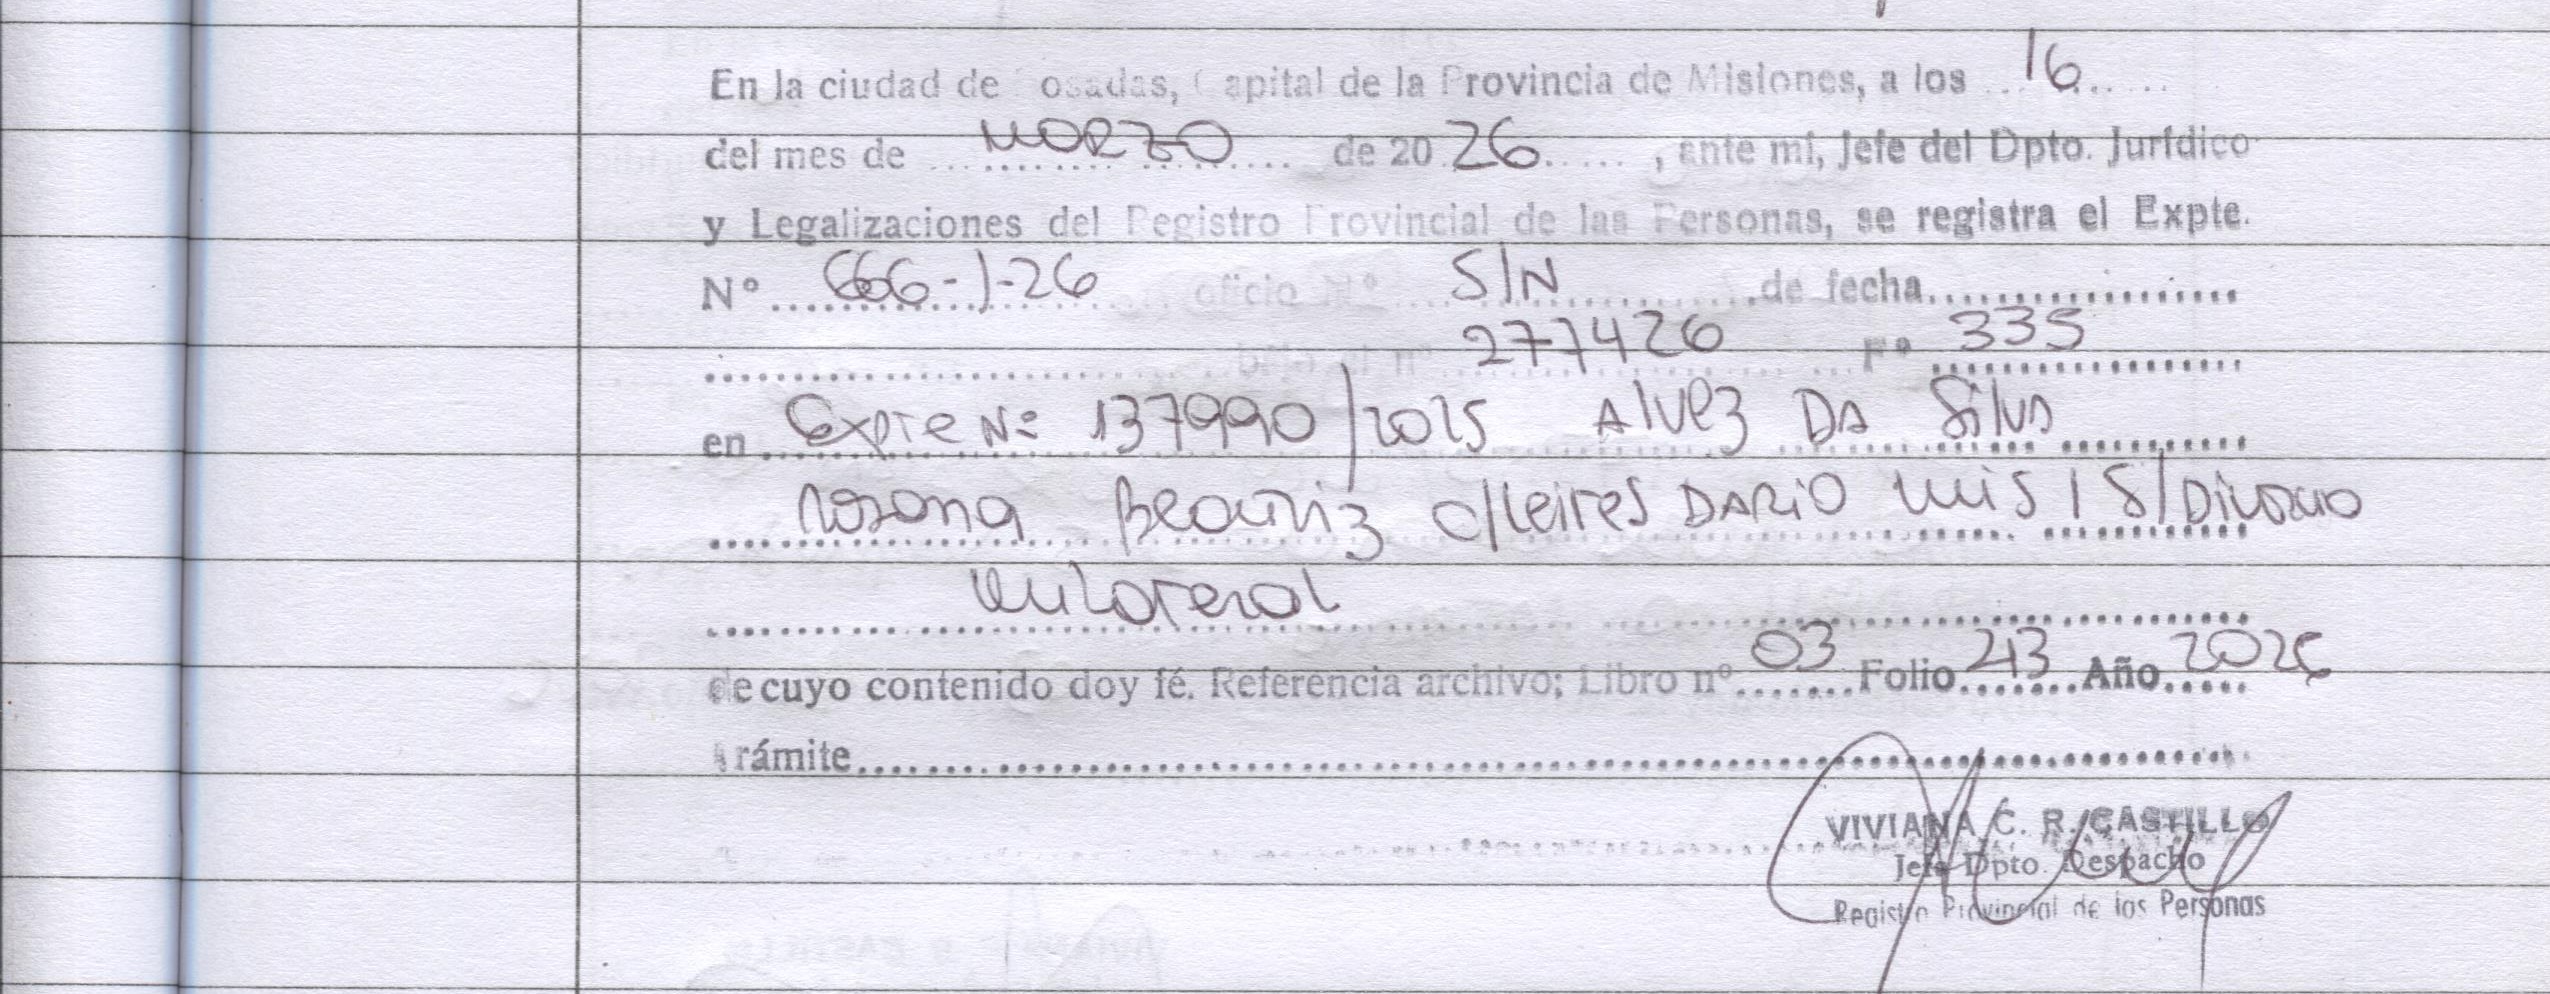 En la ciudad de Posadas, Capital de la Provincia de Misiones, a los 16
del mes de MARZO de 20 26, ante mí, Jefe del Dpto. Jurídico
y Legalizaciones del Registro Provincial de las Personas, se registra el Expte.
Nº 666-J-26 oficio Nº S/N de fecha
277426 Fº 335
en Expte Nº 137990/2025 Alvez DA Silva
Rosana Beatriz c/ Leires DARIO Luis / S/ Divorcio
Unilateral
de cuyo contenido doy fé. Referencia archivo; Libro nº 03 Folio 213 Año 2026
trámite
VIVIANA C. R. CASTILLO
Jefa Dpto. Despacho
Registro Provincial de las Personas